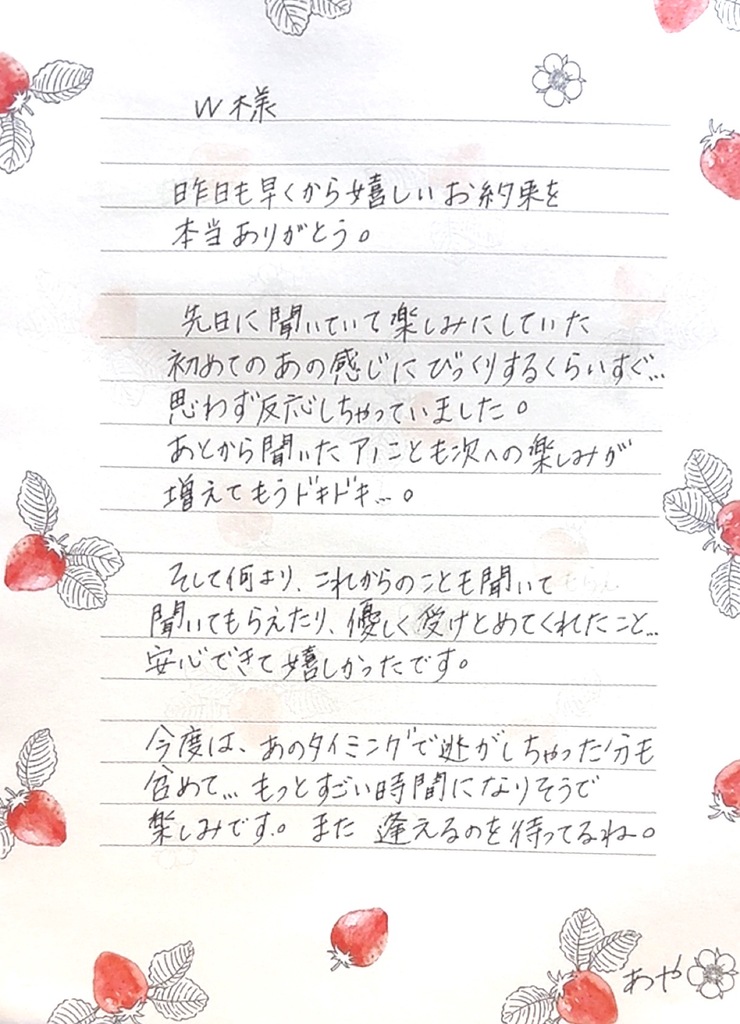 W様
昨日も早くから嬉しいお約束を
本当ありがとう。
先日に聞いていて楽しみにしていた
初めてのあの感じにびっくりするくらいすぐ…
思わず反応しちゃっていました。
あとから聞いたアノことも次への楽しみが
増えてもうドキドキ…。
そして何より、これからのことも聞いて
聞いてもらえたり、優しく受けとめてくれたこと…
安心できて嬉しかったです。
今度は、あのタイミングで逃がしちゃった分も
含めて… もっとすごい時間になりそうで
楽しみです。また 逢えるのを待ってるね。
あや